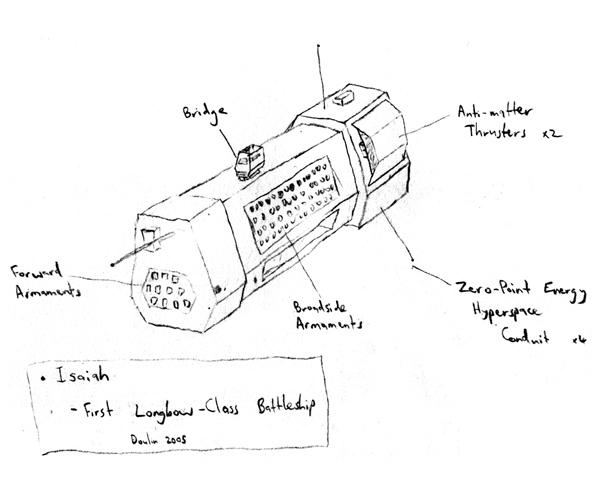 Bridge
Anti-matter
Thrusters x2
Forward
Armaments
Broadside
Armaments
Zero-Point Energy
Hyperspace
Conduit x4
• Isaiah
- First Longbow-Class Battleship
2005